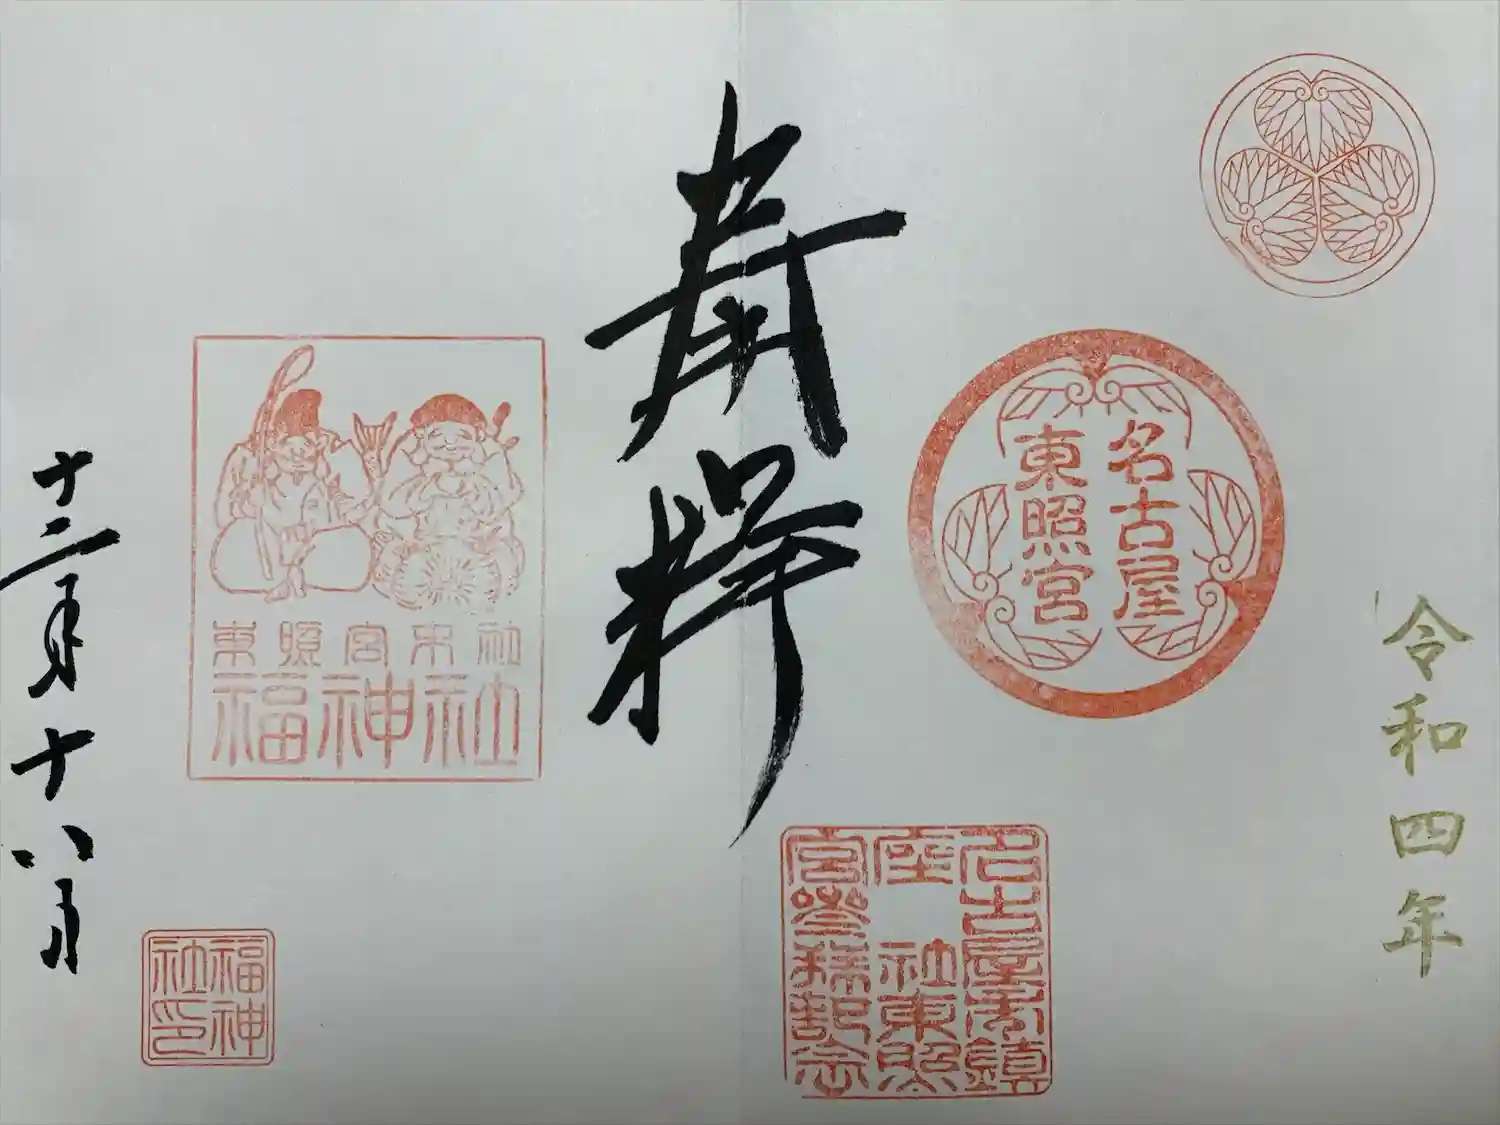 令和四年
名古屋
東照宮
名古屋市鎮
座 社東照
宮参拝記念
奉拝
東照宮末社
福神社
福神
社印
十二月十八日